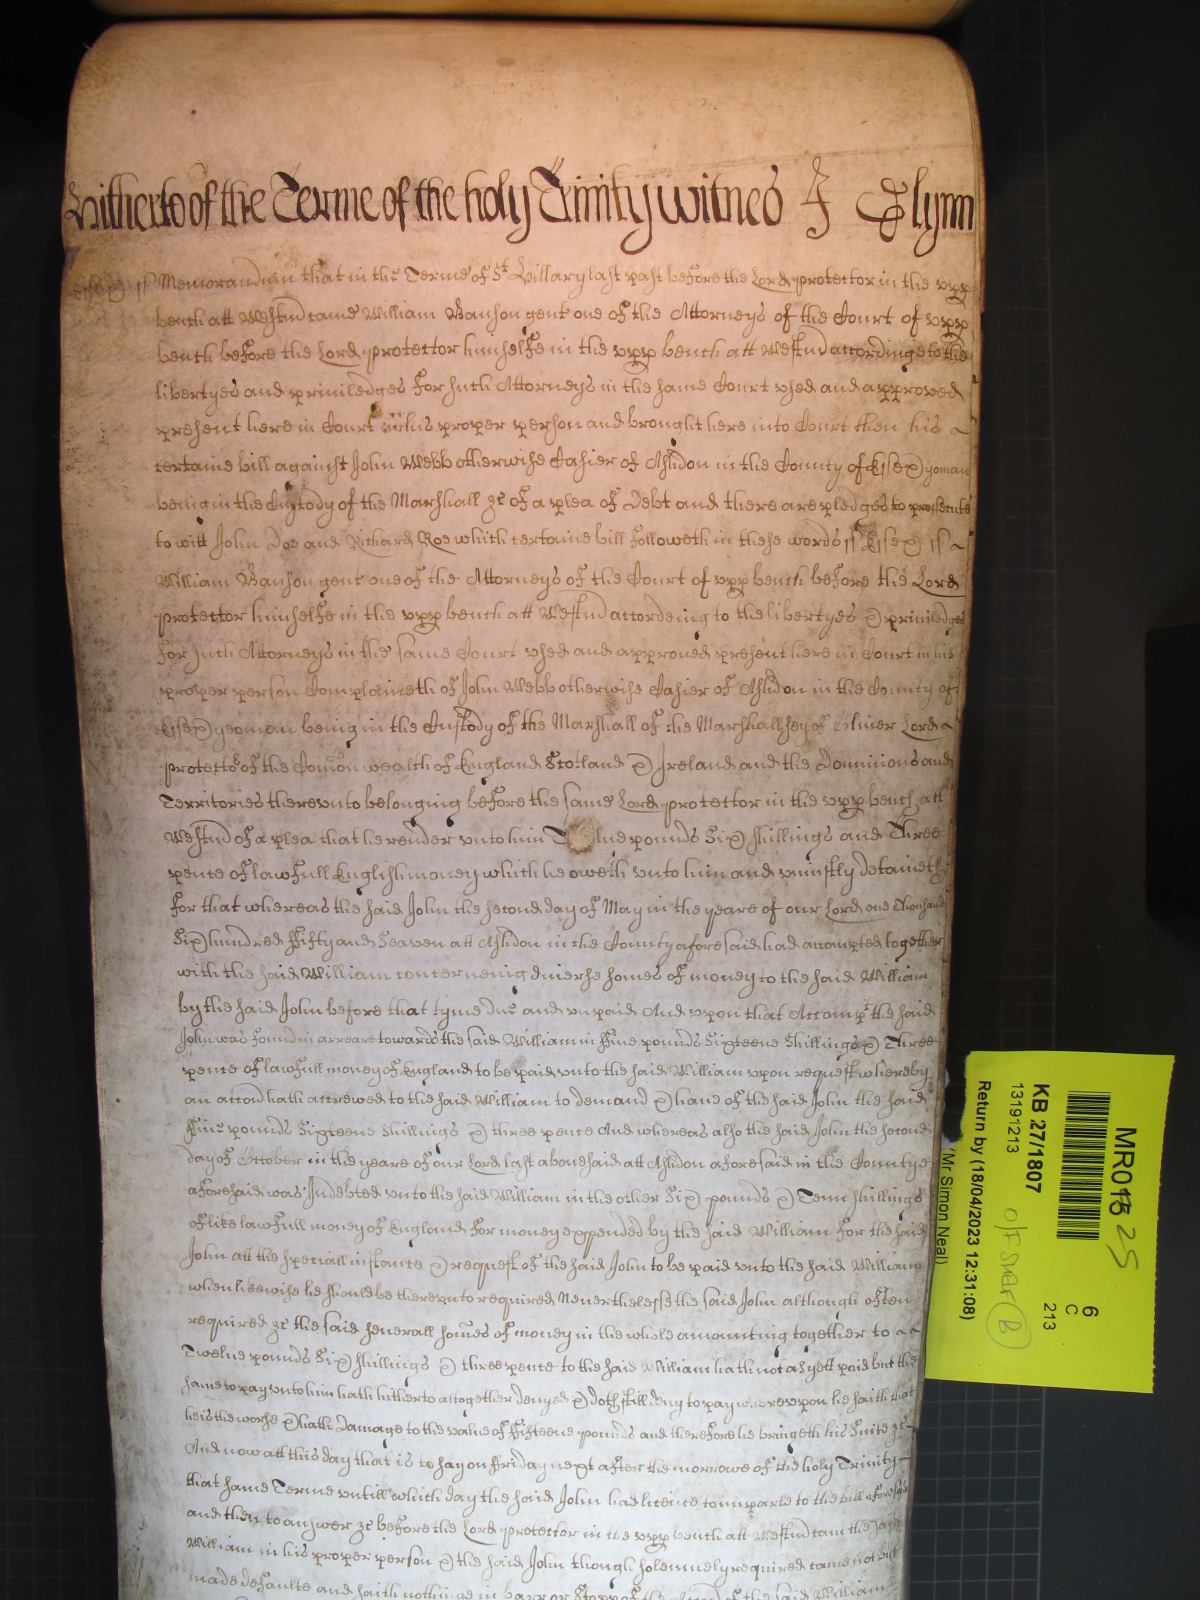 Hitherto of the Terme of the holy Trinity witnes J Glynn
Essex ss Memorandum that in the Terme of St Hillary last past before the Lord protector in the upp
bench att Westmd came William Banson gent one of the Attorneys of the Court of upp
bench before the Lord protector himselfe in the upp bench att Westmd accordinge to the
libertyes and priviledges for such Attorneys in the same Court vsed and approved
present here in Court in his proper person and brought here into Court then his
certaine bill against John Webb otherwise Casier of Ashdon in the County of Essex yoman
being in the Custody of the Marshall &c of a plea of Debt and there are pledges to prosecute
to witt John Doe and Richard Roe which certaine bill followeth in these words ss Essex ss
William Banson gent one of the Attorneys of the Court of upp bench before the Lord
protector himselfe in the upp bench att Westmd accordeing to the libertyes & priviledges
for such Attorneys in the same Court vsed and approued present here in Court in his
proper person Complaineth of John Webb otherwise Casier of Ashdon in the County of
Essex yeoman being in the Custody of the Marshall of the Marshallsey of Oliver Lord
protector of the Comon wealth of England Scotland & Ireland and the Dominions and
Territories therevnto belonging before the same Lord protector in the upp bench att
Westmd of a plea that he render vnto him lue pounds Six shillings and Three
pence of lawfull English money which he oweth vnto him and vniustly detaineth
for that whereas the said John the second day of May in the yeare of our Lord one Thousand
Six hundred ffifty and Seaven att Ashdon in the County aforesaid had accompted together
with the said William concerneing diuerse somes of money to the said William
by the said John before that tyme due and vnpaid And vpon that Accompt the said
John was found in arreare towards the said William in ffiue pounds Sixteene Shillings & Three
pence of lawfull money of England to be paid vnto the said William vpon request whereby
an accon hath accrewed to the said William to demand & haue of the said John the said
ffiue pounds Sixteene Shillings & three pence And whereas also the said John the second
day of October in the yeare of our Lord last abouesaid att Ashdon aforesaid in the Countye
aforesaid was Indebted vnto the said William in the other Six pounds & Tenn shillings
of like lawfull money of England for money expended by the said William for the said
John att the speciall instance & request of the said John to be paid vnto the said William
when likewise he should be therevnto required Neuerthelesse the said John although often
required &c the said seuerall somes of money in the whole amounting together to
Twelue pounds Six shillings & three pence to the said William hath not as yett paid but the
same to pay vnto him hath hitherto altogether denyed & doth still deny to pay wherevpon he saith that
he is the worse & hath Damage to the value of ffifteene pounds and therefore he bringeth his Suite &c
And now att this day that is to say on ffriday next after the morrowe of the holy Trinity
that same Terme vntill which day the said John had licence to imparle to the bill aforesaid
and then to answer &c before the Lord protector in the upp bench att Westmd cam the said
William in his proper person & the said John though solemnely required came not but
made defaulte and saith nothinge in barr or of the said William
MR018 25
6
C
213
KB 27/1807
13191213
o/f sheaf (B)
Return by (18/04/2023 12:31:08)
(Mr Simon Neal)